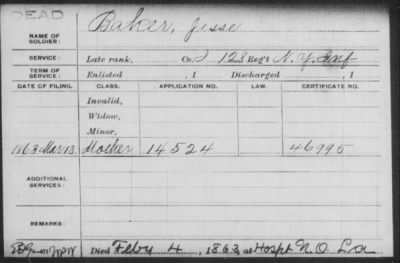 DEAD
NAME OF SOLDIER: Baker, Jesse
SERVICE: Late rank, Co. I 128 Reg't N.Y. Inf
TERM OF SERVICE: Enlisted , 1 Discharged , 1
DATE OF FILING. CLASS. APPLICATION NO. LAW. CERTIFICATE NO.
Invalid,
Widow,
Minor,
1863 Mar 13 Mother 14524 46995
ADDITIONAL SERVICES:
REMARKS:
Died Feby 4, 1863, at Hospt N.O. La